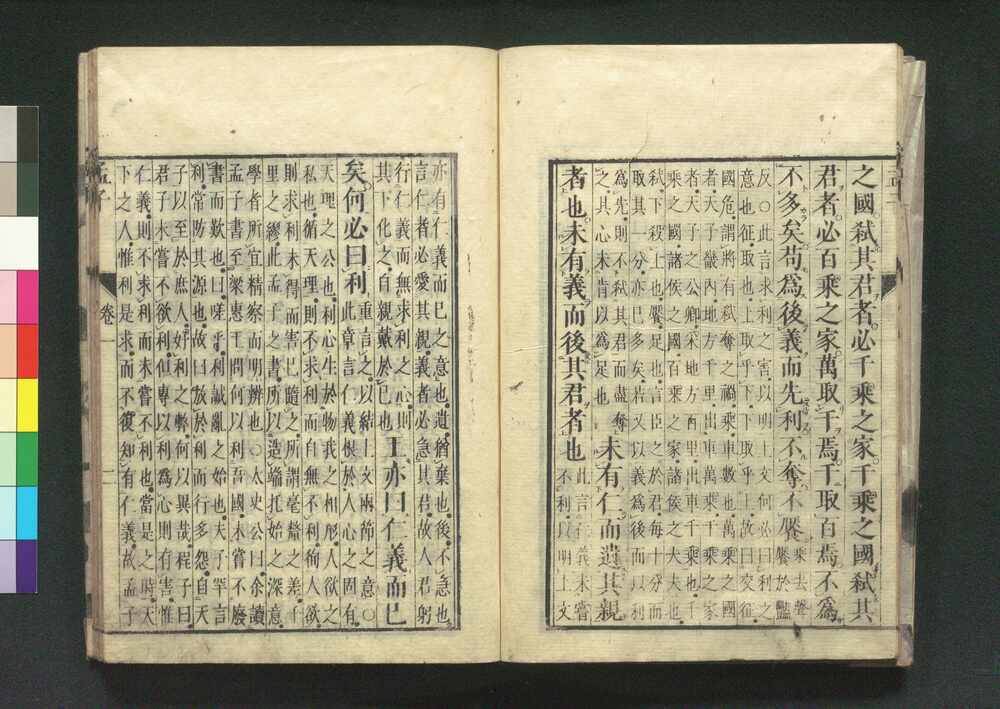 之國弑其君者必千乘之家千乘之國弑其
君者必百乘之家萬取千焉千取百焉不爲
不多矣苟爲後義而先利不奪不饜
乘去聲
饜於艷
反○此言求利之害以明上文何必曰利之
意也征取也上取乎下下取乎上故曰交征
國危謂將有弑奪之禍乘車數也萬乘之國
者天子畿內地方千里出車萬乘千乘之家
者天子之公卿采地方百里出車千乘也千
乘之國諸侯之國百乘之家諸侯之大夫也
弑下殺上也饜足也言臣之於君每十分而
取其一分亦已多矣若又以義爲後而以利
爲先則不弑其君而盡奪
之其心未肯以爲足也
未有仁而遺其親
者也未有義而後其君者也
此言仁義未嘗
不利以明上文
亦有仁義而已之意也遺猶棄也後不急也
言仁者必愛其親義者必急其君故人君躬
行仁義而無求利之心則
其下化之自親戴於己也
王亦曰仁義而已
矣何必曰利
重言之以結上文兩節之意○
此章言仁義根於人心之固有
天理之公也利心生於物我之相形人欲之
私也循天理則不求利而自無不利徇人欲
則求利未得而害已隨之所謂毫釐之差千
里之繆此孟子之書所以造端托始之深意
學者所宜精察而明辨也○太史公曰余讀
孟子書至梁惠王問何以利吾國未嘗不廢
書而歎也曰嗟乎利誠亂之始也夫子罕言
利常防其源也故曰放於利而行多怨自天
子以至於庶人好利之弊何以異哉程子曰
君子未嘗不欲利但專以利爲心則有害惟
仁義則不求利而未嘗不利也當是之時天
下之人惟利是求而不復知有仁義故孟子
孟子 卷一 二